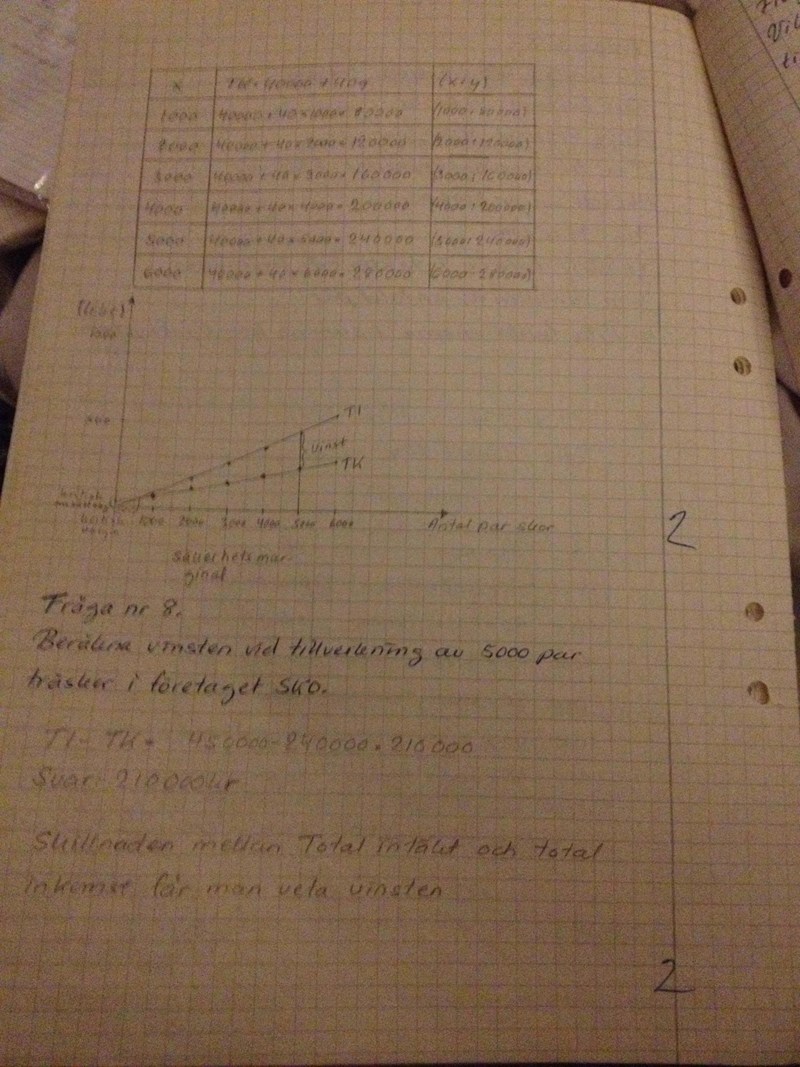 x TK = 40000 + 40q (x;y)
1000 40000 + 40 x 1000 = 80000 (1000 ; 80000)
2000 40000 + 40 x 2000 = 120000 (2000 ; 120000)
3000 40000 + 40 x 3000 = 160000 (3000 ; 160000)
4000 40000 + 40 x 4000 = 200000 (4000 ; 200000)
5000 40000 + 40 x 5000 = 240000 (5000 ; 240000)
6000 40000 + 40 x 6000 = 280000 (6000 ; 280000)
1000
TI
Vinst
TK
kritisk
kritisk
volym
1000 2000 3000 4000 5000 6000 Antal par skor
2
Säkerhetsmar-
ginal
Fråga nr 8.
Beräkna vinsten vid tillverkning av 5000 par
träskor i företaget SKO.
TI - TK = 450000 - 240000 = 210000
Svar: 210000kr
Skillnaden mellan Total intäkt och total
inkomst får man veta vinsten
2